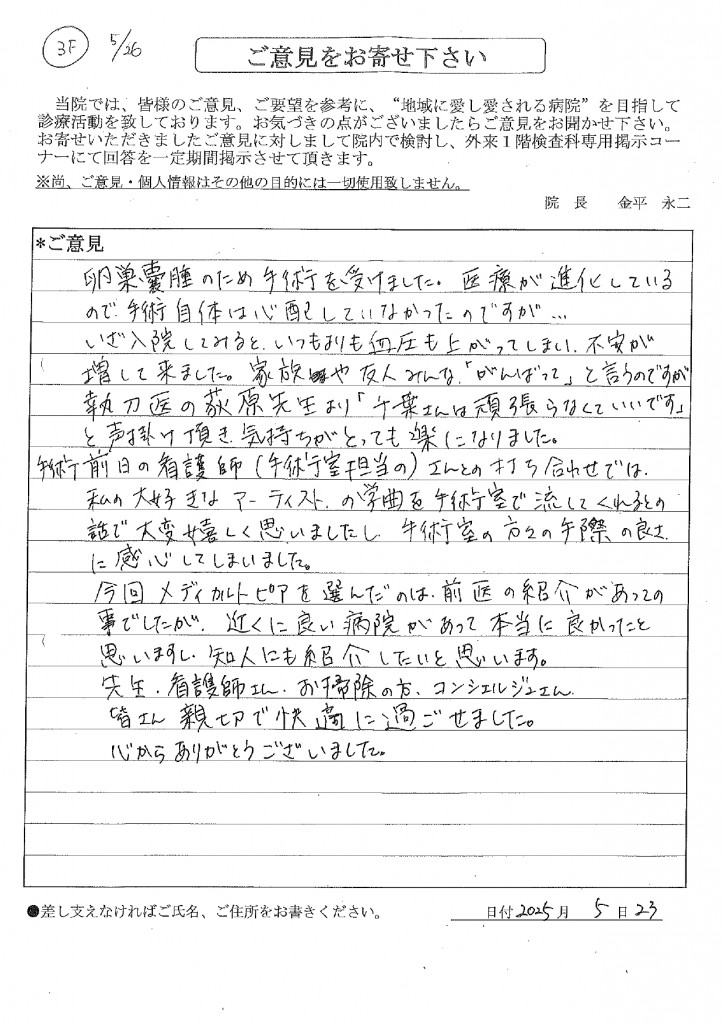 3F 5/26
ご意見をお寄せ下さい
当院では、皆様のご意見、ご要望を参考に、“地域に愛し愛される病院”を目指して
診療活動を致しております。お気づきの点がございましたらご意見をお聞かせ下さい。
お寄せいただきましたご意見に対しまして院内で検討し、外来1階検査科専用掲示コー
ナーにて回答を一定期間掲示させて頂きます。
※尚、ご意見・個人情報はその他の目的には一切使用致しません。
院 長 金平 永二
*ご意見
卵巣嚢腫のため手術を受けました。医療が進化している
ので手術自体は心配していなかったのですが…
いざ入院してみると、いつもよりも血圧も上がってしまい、不安が
増して来ました。家族や友人みんな、「がんばって」と言うのですが
執刀医の荻原先生より「千葉さんは頑張らなくていいです」
と声掛け頂き、気持ちがとっても楽になりました。
手術前日の看護師(手術室担当の)さんとの打ち合わせでは、
私の大好きなアーティストの楽曲を手術室で流してくれるとの
話で大変嬉しく思いましたし、手術室の方々の手際の良さ
に感心してしまいました。
今回メディカルトピアを選んだのは、前医の紹介があっての
事でしたが、近くに良い病院があって本当に良かったと
思いますし、知人にも紹介したいと思います。
先生、看護師さん、お掃除の方、コンシェルジュさん、
皆さん親切で快適に過ごせました。
心からありがとうございました。
●差し支えなければご氏名、ご住所をお書きください。 日付 2025月 5日 23